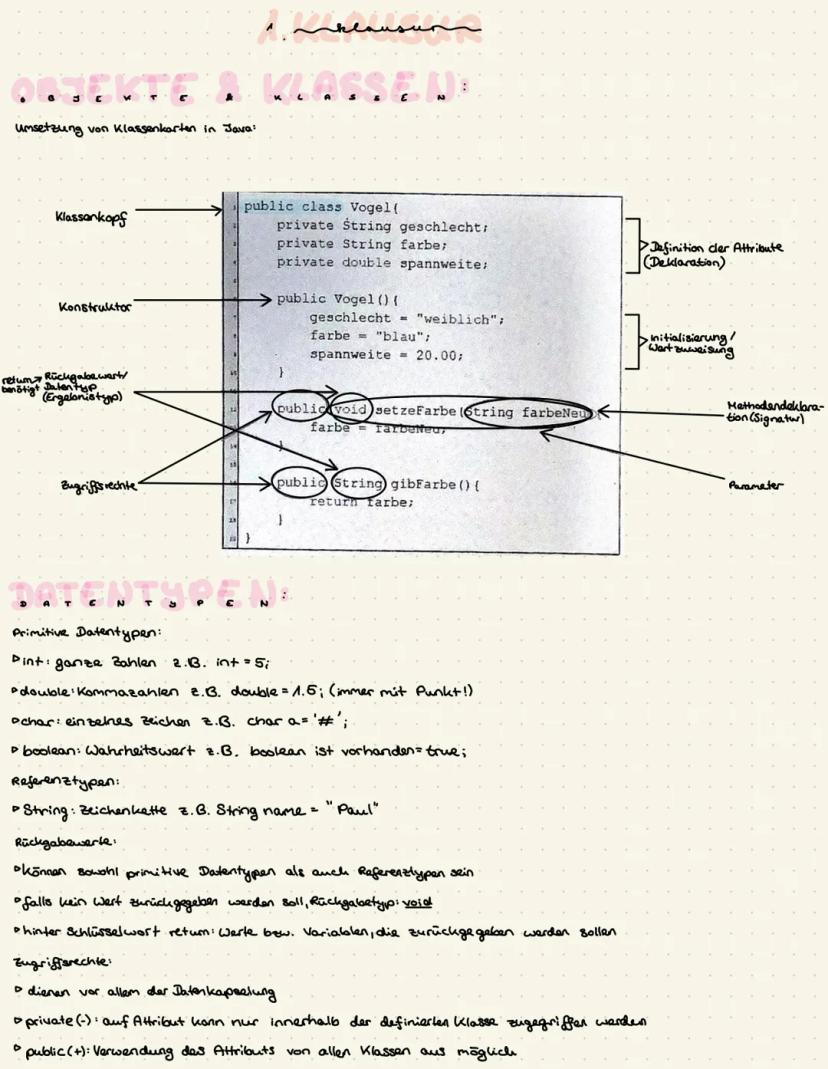 1. Klausur
OBJEKTE & KLASSEN:
Umsetzung von Klassenkarten in Java:
Klassenkopf
public class Vogel{
private String geschlecht;
private String farbe;
private double spannweite;
Definition der Attribute
(Deklaration)
Konstruktor
public Vogel(){
geschlecht = "weiblich";
farbe = "blau";
spannweite = 20.00;
}
Initialisierung/
Wertzuweisung
return → Rückgabewert/
benötigt Datentyp
(Ergebnistyp)
public void setzeFarbe(String farbeNeu)
farbe = farbeNeu;
}
Methodendeklara-
tion (Signatur)
Zugriffsrechte
public String gibFarbe(){
return farbe;
}
}
Parameter
DATENTYPEN:
Primitive Datentypen:
▹int: ganze Zahlen z.B. int = 5;
▹double: Kommazahlen z.B. double = 1.5; (immer mit Punkt!)
▹char: einzelnes Zeichen z.B. char a = '#';
▹boolean: Wahrheitswert z.B. boolean ist vorhanden = true;
Referenztypen:
▹String: Zeichenkette z.B. String name = "Paul"
Rückgabewerte:
▹können sowohl primitive Datentypen als auch Referenztypen sein
▹falls kein Wert zurückgegeben werden soll, Rückgabetyp: void
▹hinter Schlüsselwort return: Werte bzw. Variablen, die zurückgegeben werden sollen
Zugriffsrechte:
▹dienen vor allem der Datenkapselung
▹private (-): auf Attribut kann nur innerhalb der definierten Klasse zugegriffen werden
▹public (+): Verwendung des Attributs von allen Klassen aus möglich